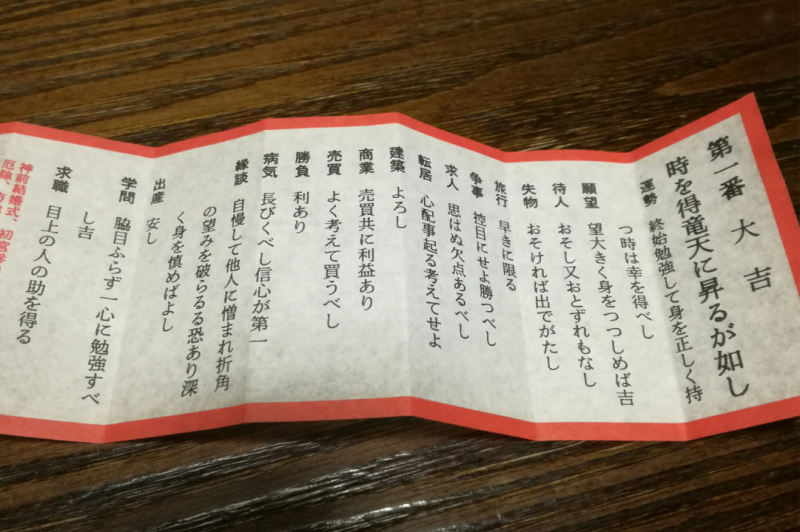 第一番 大吉
時を得竜天に昇るが如し
運勢 終始勉強して身を正しく持
つ時は幸を得べし
願望 望大きく身をつつしめば吉
待人 おそし又おとずれもなし
失物 おそければ出でがたし
旅行 早きに限る
争事 控目にせよ勝つべし
求人 思はぬ欠点あるべし
転居 心配事起る考えてせよ
建築 よろし
商業 売買共に利益あり
売買 よく考えて買うべし
勝負 利あり
病気 長びくべし信心が第一
縁談 自慢して他人に憎まれ折角
の望みを破らるる恐あり深
く身を慎めばよし
出産 安し
学問 脇目ふらず一心に勉強すべ
し吉
求職 目上の人の助を得る
神前結婚式、初宮
厄除、